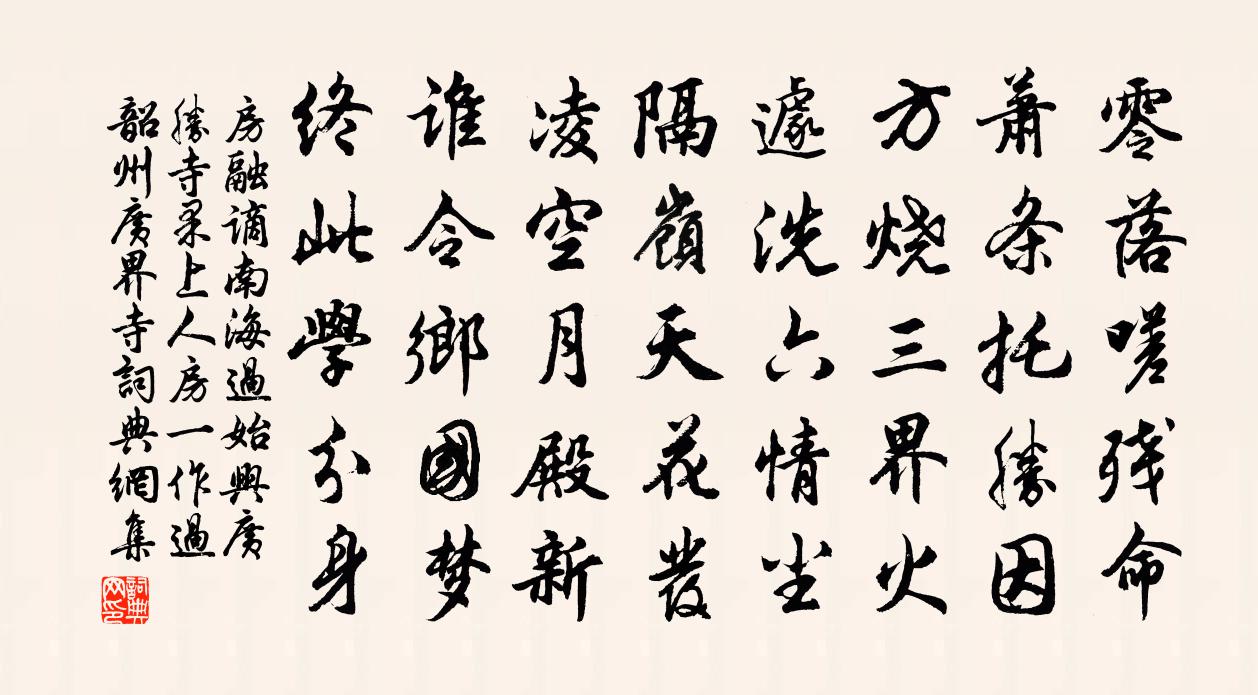 零落嗟残命
萧条托勝因
方烧三界火
遽洗六情尘
隔嶺天花發
凌空月殿新
谁令鄉國梦
终此學分身
房融谪南海過始興廣
勝寺果上人房一作過
韶州廣界寺詞典網集